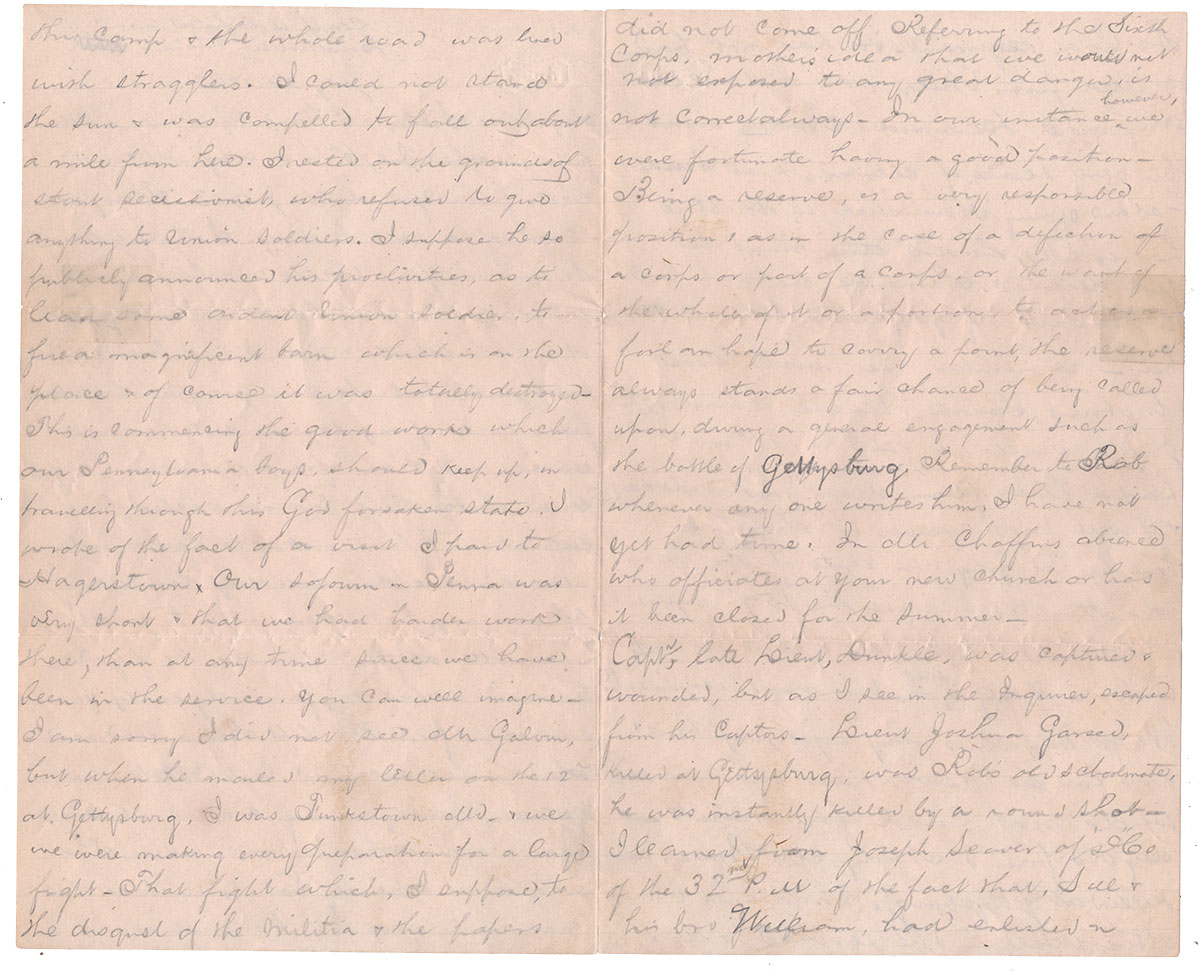 this camp & the whole road was lined
with stragglers. I could not stand
the sun & was compelled to fall out, about
a mile from here. I rested on the grounds of
stout secessionist, who refused to give
anything to Union Soldiers. I suppose he so
publicly announced his proclivities, as to
lead some ardent Union Soldier, to
fire a magnificent barn which is on the
place & of course it was totally destroyed-
This is commencing the good work which
our Pennsylvania boys, should keep up, in
travelling through this God forsaken state. I
wrote of the fact of a visit I paid to
Hagerstown. Our sojourn in Penna was
very short & that we had harder work
there, than at any time since we have
been in the service. You can well imagine-
I am sorry I did not see Mr Galvin,
but when he mailed my letter on the 12"
at Gettysburg, I was Funkstown Md- & we
we were making every preparation for a large
fight- That fight which, I suppose, to
the disgust of the Militia & the papers
did not come off. Referring to the Sixth
Corps, mother's idea that we would not
not exposed to any great danger, is
not correct always- In our instance, however, we
were fortunate having a good position-
Being a reserve, is a very responsible
position, as in the case of a defection of
a corps or part of a corps, or the want of
the whole of it or a portion, to act as a
forlorn hope to carry a point, the reserve
always stands a fair chance of being called
upon, during a general engagement such as
the battle of Gettysburg. Remember to Rob
whenever any one writes him, I have not
yet had time. In Mr Chaffins absence
who officiates at your new Church or has
it been closed for the summer-
Capt, late Lieut, Dunkle, was captured &
wounded, but as I see in the Inquirer, escaped
from his Captors- Lieut Joshua Garsed,
killed at Gettysburg, was Rob's old schoolmate,
he was instantly killed by a round shot-
I learned from Joseph Seaver of Co
of the 32nd P.M of the fact that, &
his bro William, had enlisted in